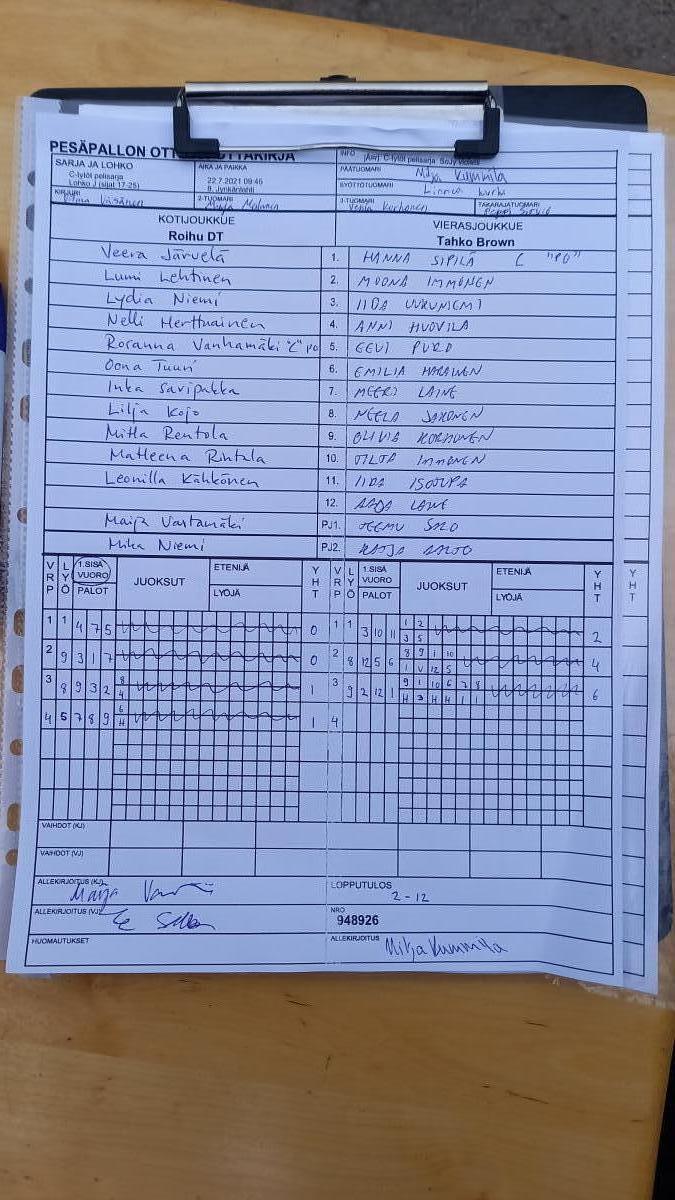 PESÄPALLON OTT
SARJA JA LOHKO
C-tytöt pelisarja
Lohko J (sijat 17-25)
AIKA JA PAIKKA
22.7.2021 09:45
8, Jynkänlahti
INFO C-tytöt pelisarja
PÄÄTUOMARI Kummila
SYÖTTÖTUOMARI Linnea
KIRJURI Väisänen
2-TUOMARI
3-TUOMARI Venla Korhonen
TAKARAJATUOMARI
KOTIJOUKKUE
Roihu DT
VIERASJOUKKUE
Tahko Brown
Veera Järvelä 1. HANNA SIPILÄ C "PO"
Lumi Lehtinen 2. MOONA IMMONEN
Lydia Niemi 3. IIDA UUKUNIEMI
Nelli Herttuainen 4. ANNI HUOVILA
Rosanna Vanhamäki "C" po 5. EEVI PURO
Oona Tuuri 6. EMILIA
Inka Saripakka 7. MEERI LAINE
Lilja Kojo 8. NEELA JAKONEN
Mitla Rentola 9. OLIVIA KORHONEN
Matleena Rintala 10. TILDA IMMONEN
Leonilla Kähkönen 11. IIDA
12. LAINE
Maija Vartamäki PJ1. TEEMU SALO
Mika Niemi PJ2. KATJA
VRP LYÖ 1.SISÄ VUORO PALOT JUOKSUT ETENIJÄ LYÖJÄ YHT VRP LYÖ 1.SISÄ VUORO PALOT JUOKSUT ETENIJÄ LYÖJÄ YHT
YHT
1 1 4 7 5 0 1 1 3 10 11 1 2 2
3 5
2 9 3 1 7 0 2 8 12 5 6 8 9 1 10 4
1 V 12 5
3 8 9 3 2 8 1 3 9 2 12 1 9 1 10 6 7 8 6
4 H 3 H H 1 1
4 5 7 8 9 6 1 4
H
VAIHDOT (KJ)
VAIHDOT (VJ)
ALLEKIRJOITUS (KJ) Maija
LOPPUTULOS
2-12
ALLEKIRJOITUS (VJ)
NRO
948926
HUOMAUTUKSET
ALLEKIRJOITUS Milja Kummila